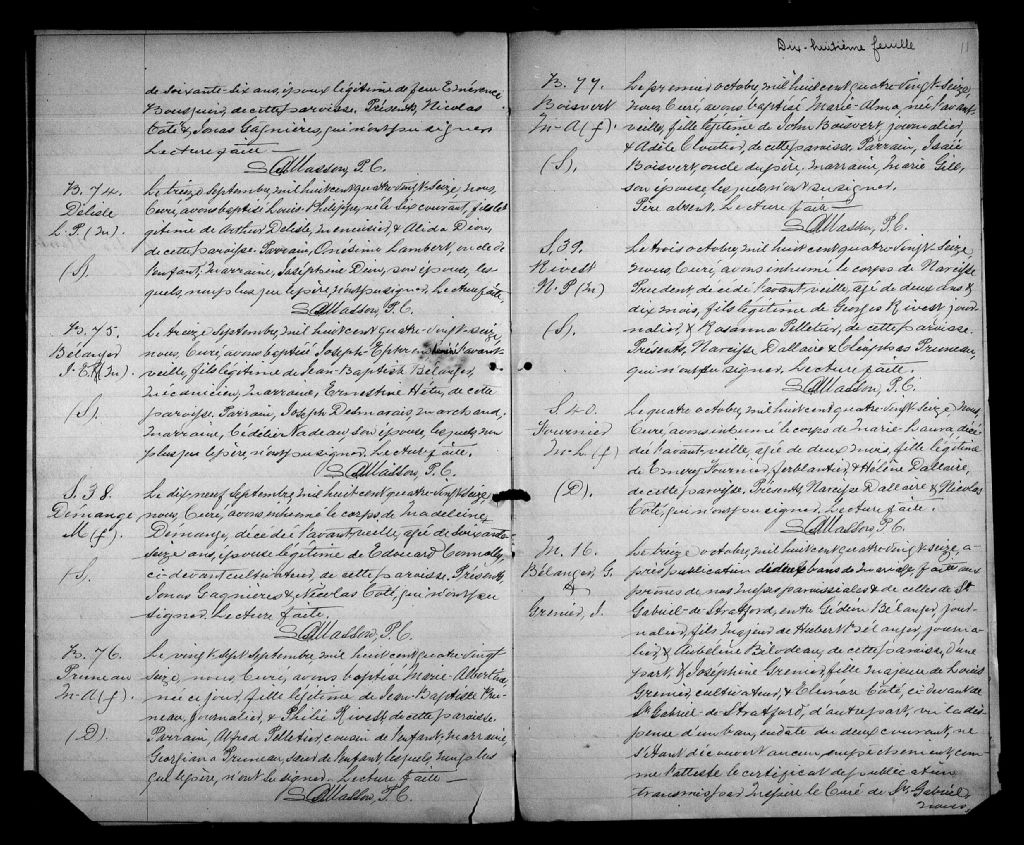 de soixante-six ans, époux légitime de feue Emérence
Bousquin, de cette paroisse. Présents, Nicolas
Côté & Jonas Gagnières, qui n'ont pu signer
Lecture faite —
Masson, P. C.
B. 74.
Délisle
L. P. (m)
(S).
Le treize Septembre, mil huit cent quatre-vingt-seize, nous,
Curé, avons baptisé Louis-Philippe, né le six courant, fils lé
gitime de Arthur Delisle, menuisier, & Alida Dion,
de cette paroisse. Parrain, Onésime Lambert, oncle de
l'enfant, marraine, Joséphine Dion, son épouse, les
quels, non plus que le père, n'ont pu signer. Lecture faite —
Masson, P. C.
B. 75.
Bélanger
J. E. (m)
(S).
Le treize Septembre, mil huit cent quatre-vingt-seize,
nous, Curé, avons baptisé Joseph-Ephrem né l'avant-
veille, fils légitime de Jean-Baptiste Bélanger,
mécanicien, marraine, Ernestine Hétu, de cette
paroisse. Parrain, Joseph Desmarais, marchand,
marraine, Nadeau, son épouse, lesquels, non
plus que le père, n'ont pu signer. Lect. faite.
Masson, P. C.
S. 38.
Démange
M. (f).
(S).
Le dix-neuf Septembre, mil huit cent quatre-vingt-seize
nous, Curé, avons inhumé le corps de Madeleine
Démange, décédée l'avant-veille, agée de soixante
seize ans, épouse légitime de Edouard Connolly,
ci-devant cultivateur, de cette paroisse. Présents
Jonas Gagnières & Nicolas Côté, qui n'ont pu
signer. Lecture faite.
Masson, P. C.
B. 76.
Pruneau
M-A (f).
(D).
Le vingt-sept Septembre, mil huit cent quatre-vingt
seize, nous, Curé, avons baptisé Marie-Albertine
née ce jour, fille légitime de Jean-Baptiste Pru
neau, journalier, & Philie Rivest de cette paroisse.
Parrain, Alfred Pelletier, cousin de l'enfant, marraine,
Georgiana Pruneau, sœur de l'enfant, lesquels, non plus
que le père, n'ont pu signer. Lecture faite —
Masson, P. C.
Dix-huitième feuille
B. 77.
Boisvert
M-A (f)
(S).
Le premier octobre, mil huit cent quatre-vingt-seize,
nous, Curé, avons baptisé Marie-Alma, née l'avant-
veille, fille légitime de John Boisvert journalier,
& Adèle Cloutier, de cette paroisse. Parrain, Isaïe
Boisvert, oncle du père, marraine, Marie Gill,
son épouse, lesquels n'ont su signer.
Père absent. Lecture faite —
Masson, P. C.
S. 39.
Rivest
N. P. (m)
(S).
Le trois octobre, mil huit cent quatre-vingt-seize,
nous, Curé, avons inhumé le corps de Narcisse
Prudent décédé l'avant-veille, agé de deux ans &
dix mois, fils légitime de Georges Rivest jour
nalier, & Rosanna Pelletier, de cette paroisse.
Présents, Narcisse Dallaire & Cléophas Pruneau,
qui n'ont pu signer. Lecture faite.
Masson, P. C.
S. 40.
Fournier
M-L (f)
(D).
Le quatre octobre, mil huit cent quatre-vingt-seize, nous
Curé, avons inhumé le corps de Marie-Laura, décé
dée l'avant-veille, agée de deux mois, fille légitime
de Emery Fournier, ferblantier, & Hélène Dallaire,
de cette paroisse. Présents, Narcisse Dallaire & Nicolas
Côté, qui n'ont pu signer. Lecture faite.
Masson, P. C.
M. 16.
Bélanger, G.
&
Grenier, J.
Le treize octobre, mil huit cent quatre-vingt-seize, a-
près publication de deux bans de mariage faite aux
prônes de nos messes paroissiales & de celles de St
Gabriel-de-Stratford, entre Gédéon Bélanger, jour-
nalier, fils majeur de Hubert Bélanger, journa-
lier, & Bilodeau, de cette paroisse, d'une
part, & Joséphine Grenier, fille majeure de Louis
Grenier, cultivateur, & Eléonore Côté, ci-devant de
St Gabriel-de-Stratford, d'autre part, vu la dis-
pense d'un ban, en date du deux courant, ne
s'étant découvert aucun empêchement, com-
me l'atteste le certificat de publication
transmis par messire le Curé de St Gabriel,
nous,